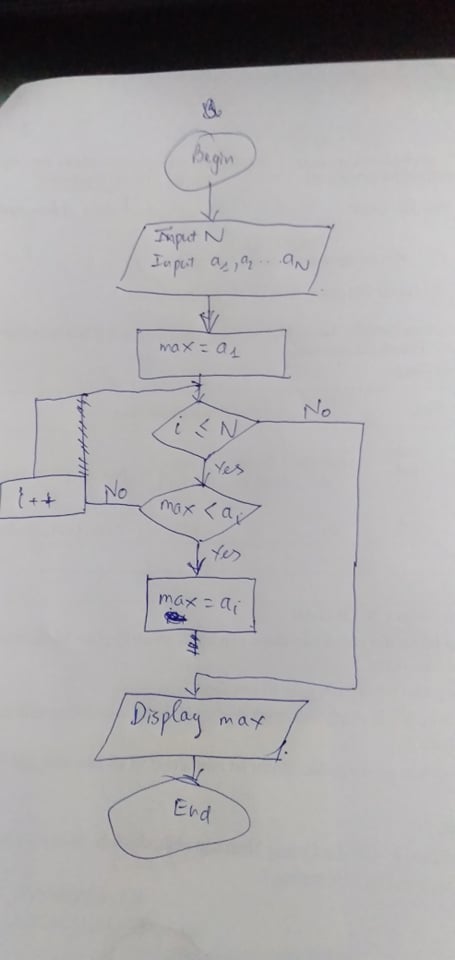 Begin
Input N
Input a1, a2 ... aN
max = a1
i ≤ N
No
Yes
max < ai
No
i++
Yes
max = ai
Display max
End